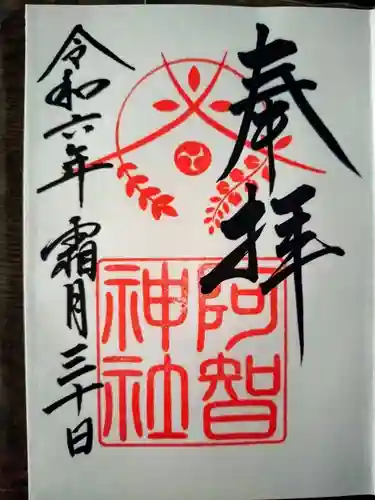 奉拝
阿智
神社
令和六年 霜月三十日